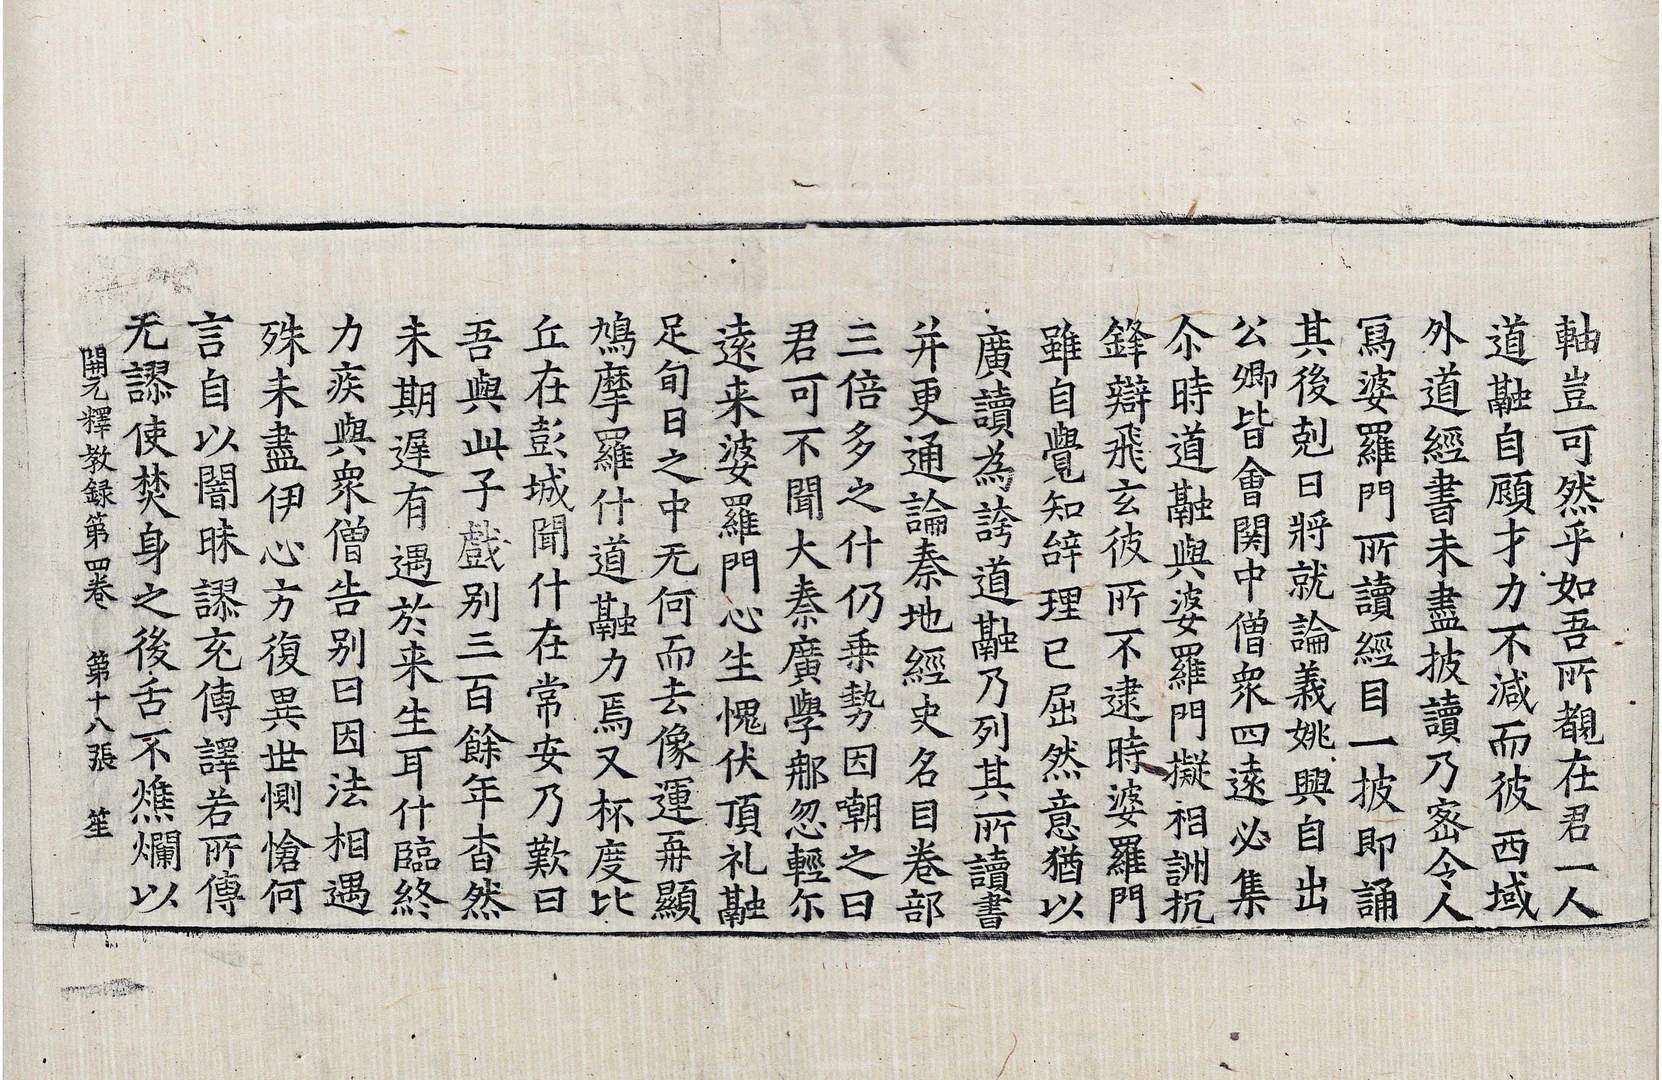 軸豈可然乎如吾所覩在君一人
道融自顧才力不減而彼西域
外道經書未盡披讀乃宻令人
冩婆羅門所讀經目一披即誦
其後剋日將就論義姚興自出
公卿皆會関中僧衆四遠必集
尒時道融與婆羅門擬相詶抗
鋒辯飛玄彼所不逮時婆羅門
雖自覺知辝理已屈然意猶以
廣讀為誇道融乃列其所讀書
并更通論秦地經史名目卷部
三倍多之什仍乗勢因嘲之曰
君可不聞大秦廣學郍忽輕尓
遠来婆羅門心生愧伏頂礼融
足旬日之中无何而去像運再顯
鳩摩羅什道融力焉又杯度比
丘在彭城聞什在常安乃歎曰
吾與此子戲別三百餘年杳然
未期遲有遇於来生耳什臨終
力疾與衆僧告別曰因法相遇
殊未盡伊心方復異世惻愴何
言自以闇昧謬充傳譯若所傳
无謬使焚身之後舌不燋爛以
開元釋教録第四卷 第十八張 笙